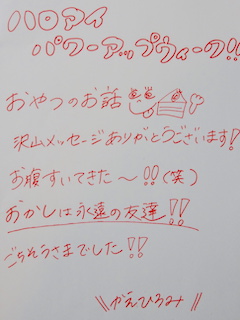 ハロアイ
パワーアップウィーク!!
おやつのお話
沢山メッセージありがとうございます!
お腹すいてきた〜!!(笑)
おかしは永遠の友達!!
ごちそうさまでした!!
\\かえひろみ//